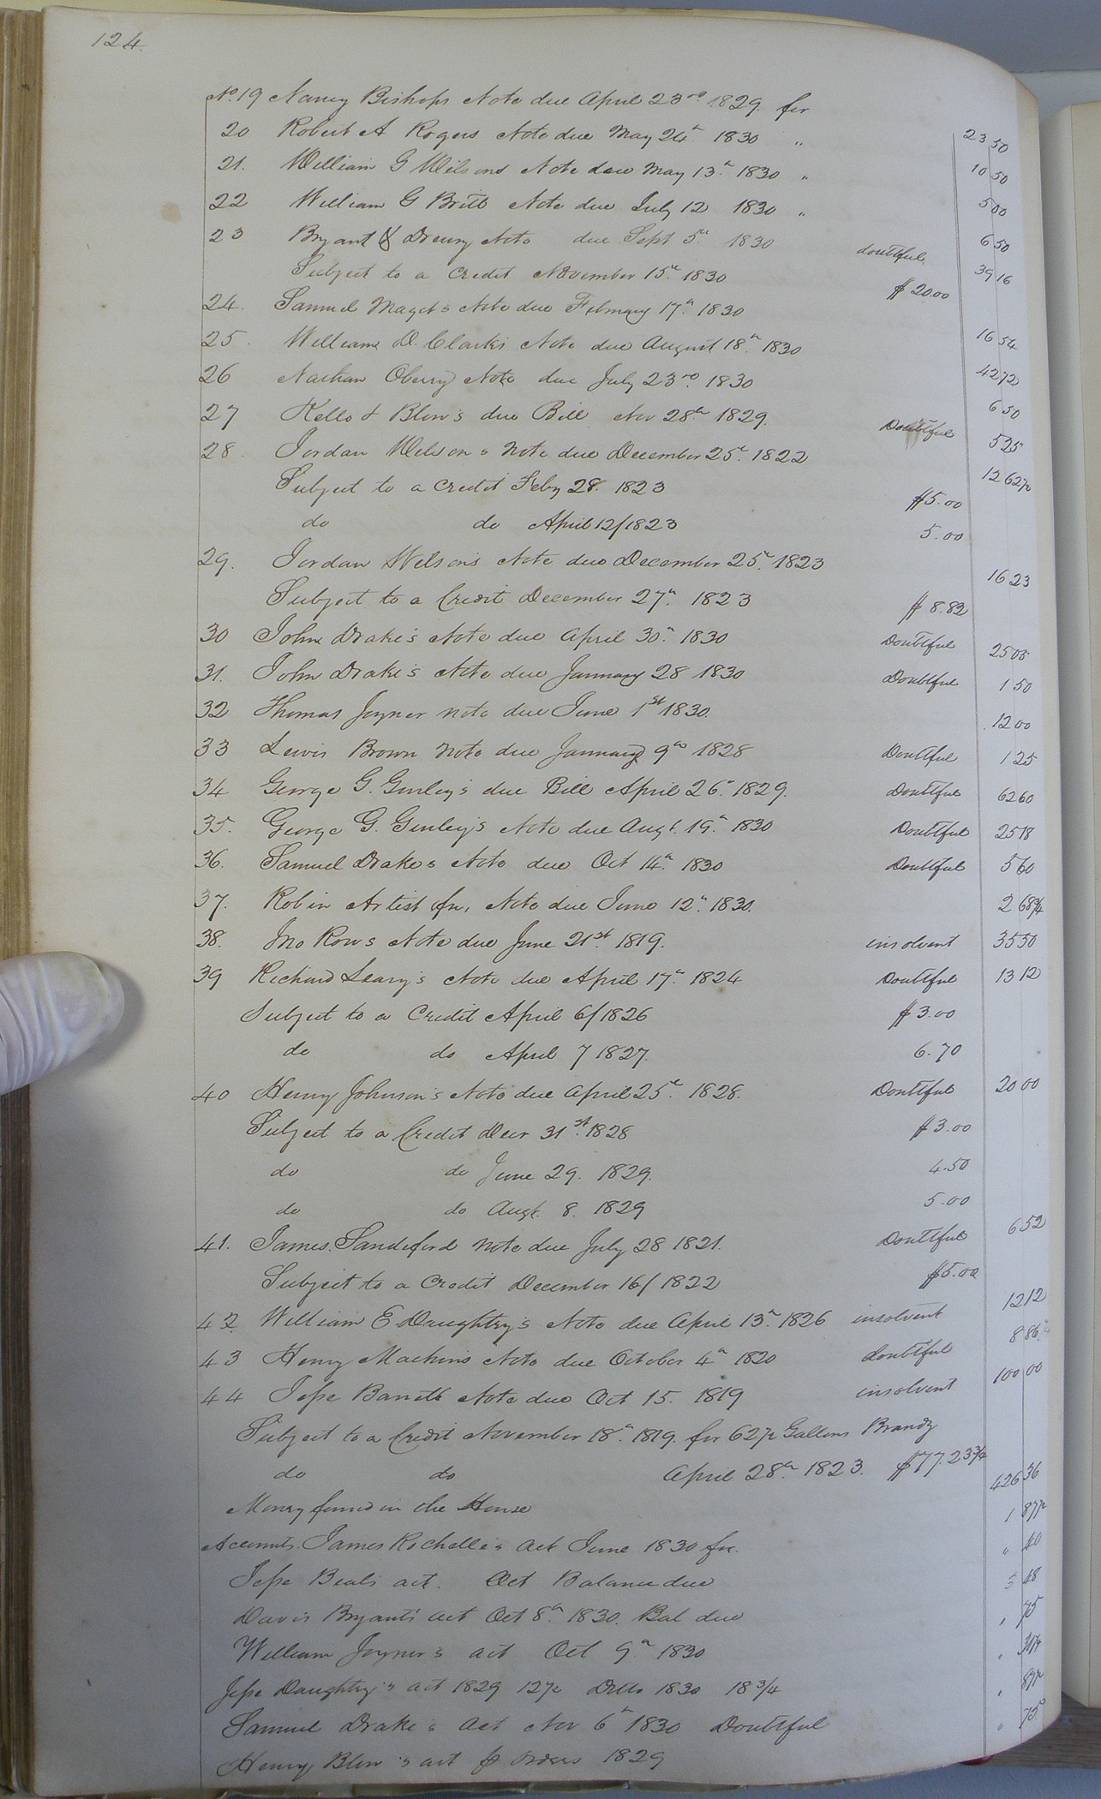 124.
No. 19 Nancy Bishops Note due April 23rd 1829. for 23 50
20 Robert A Rogers Note due May 24th 1830 " 10 50
21. William G Wilsons Note due May 13th 1830 " 5 00
22 William G Britt Note due July 12 1830 " 6 50
23 Bryant & Drewry Note due Sept 5th 1830 doubtful 39 16
Subject to a Credit November 15th 1830 $20 00
24. Samuel Maget's Note due February 17th 1830 16 54
25. William D. Clark's Note due August 18th 1830 42 72
26 Nathan Oberry Note due July 23rd 1830 6 50
27 Kello & Blow's due Bill Nov 28th 1829. Doubtful 5 25
28. Jordan Wilson's Note due December 25th 1822 126 27½
Subject to a Credit Feby 28. 1823 $5.00
do do April 12/1823 5.00
29. Jordan Wilson's Note due December 25th 1823 16 23
Subject to a Credit December 27th 1823 $8.82
30 John Drake's Note due April 30th 1830 Doubtful 25 05
31. John Drake's Note due January 28 1830 Doubtful 1 50
32 Thomas Joyner note due June 1st 1830. 12 00
33 Lewis Brown Note due January 9th 1828 Doubtful 1 25
34 George G. Gurley's due Bill April 26th 1829. Doubtful 62 60
35. George G. Gurley's Note due Augt. 19th 1830 Doubtful 25 18
36. Samuel Drake's Note due Oct 14th 1830 Doubtful 5 60
37. Robin Artist for, Note due June 12th 1830. 2 68¾
38. Jno Rows Note due June 21st 1819. insolvent 35 50
39 Richard Leary's Note due April 17th 1824 Doubtful 13 12
Subject to a Credit April 6/1826 $3.00
do do April 7 1827. 6.70
40 Henry Johnson's Note due April 25th 1828. Doubtful 20 00
Subject to a Credit Decr 31st 1828 $3.00
do do June 29. 1829. 4.50
do do Augt. 8. 1829 5.00
41. James Sandeford note due July 28 1821. Doubtful 6 52
Subject to a Credit December 16/1822 $5.00
42 William E Daughtry's Note due April 13th 1826 insolvent 12 12
43 Henry Machins Note due October 4th 1820 doubtful 8 86
44 Jesse Barrett Note due Oct 15. 1819 insolvent 100 00
Subject to a Credit November 18th 1819. for 62½ Gallons Brandy
do do April 28th 1823. $77.23¾
Money found in the House 426 36
Accounts. James Rochelle's act June 1830 for. 1 87½
Jesse Beals act. Oct Balance due " 40
Davis Bryants act Oct 8th 1830. Bal due 5 48
William Joyner's act Oct 9th 1830 " 75
Jesse Daughtry's act 1829 12½ Ditto 1830 18¾
Samuel Drake's act Nov 6th 1830 Doubtful " 87½
Henry Blow's act 1829 " 75